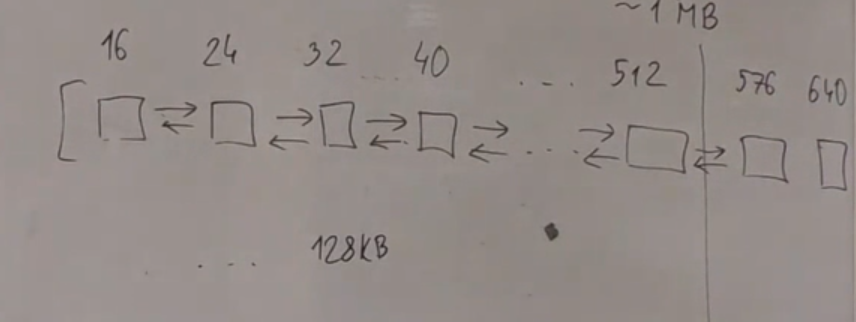 ~1 MB
16 24 32 .... 40 .... 512 576 640
...
... 128KB